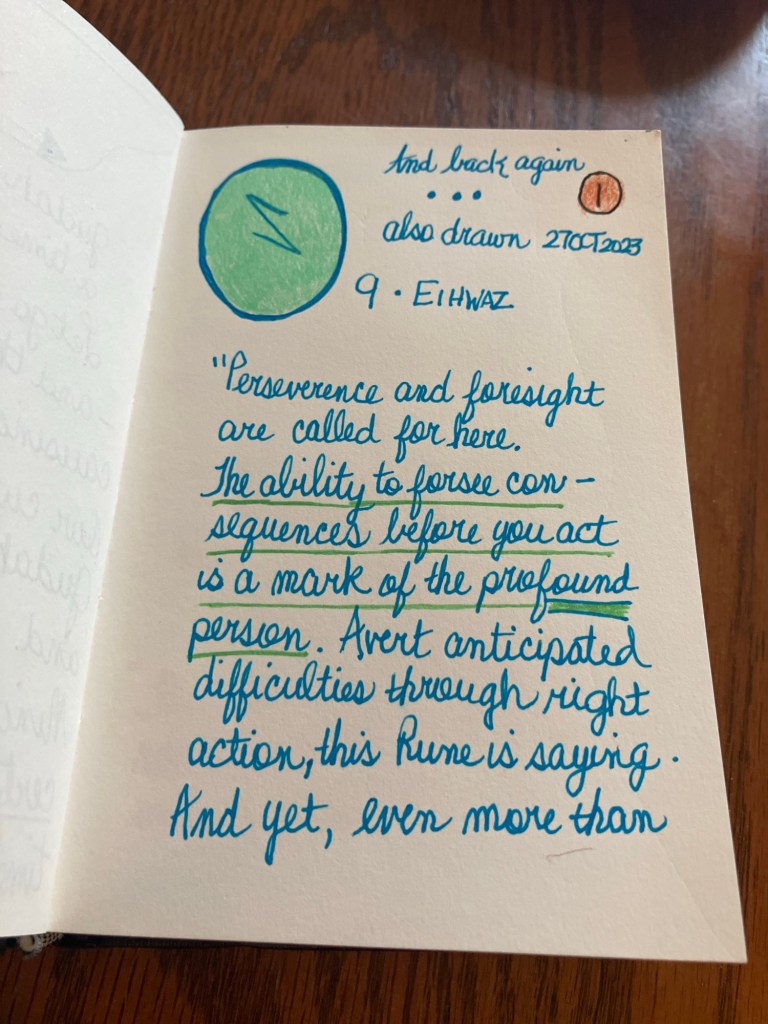 And back again
• • •
1
also drawn 27OCT2023
9 · EIHWAZ
"Perseverence and foresight
are called for here.
The ability to forsee con-
sequences before you act
is a mark of the profound
person. Avert anticipated
difficulties through right
action, this Rune is saying.
And yet, even more than